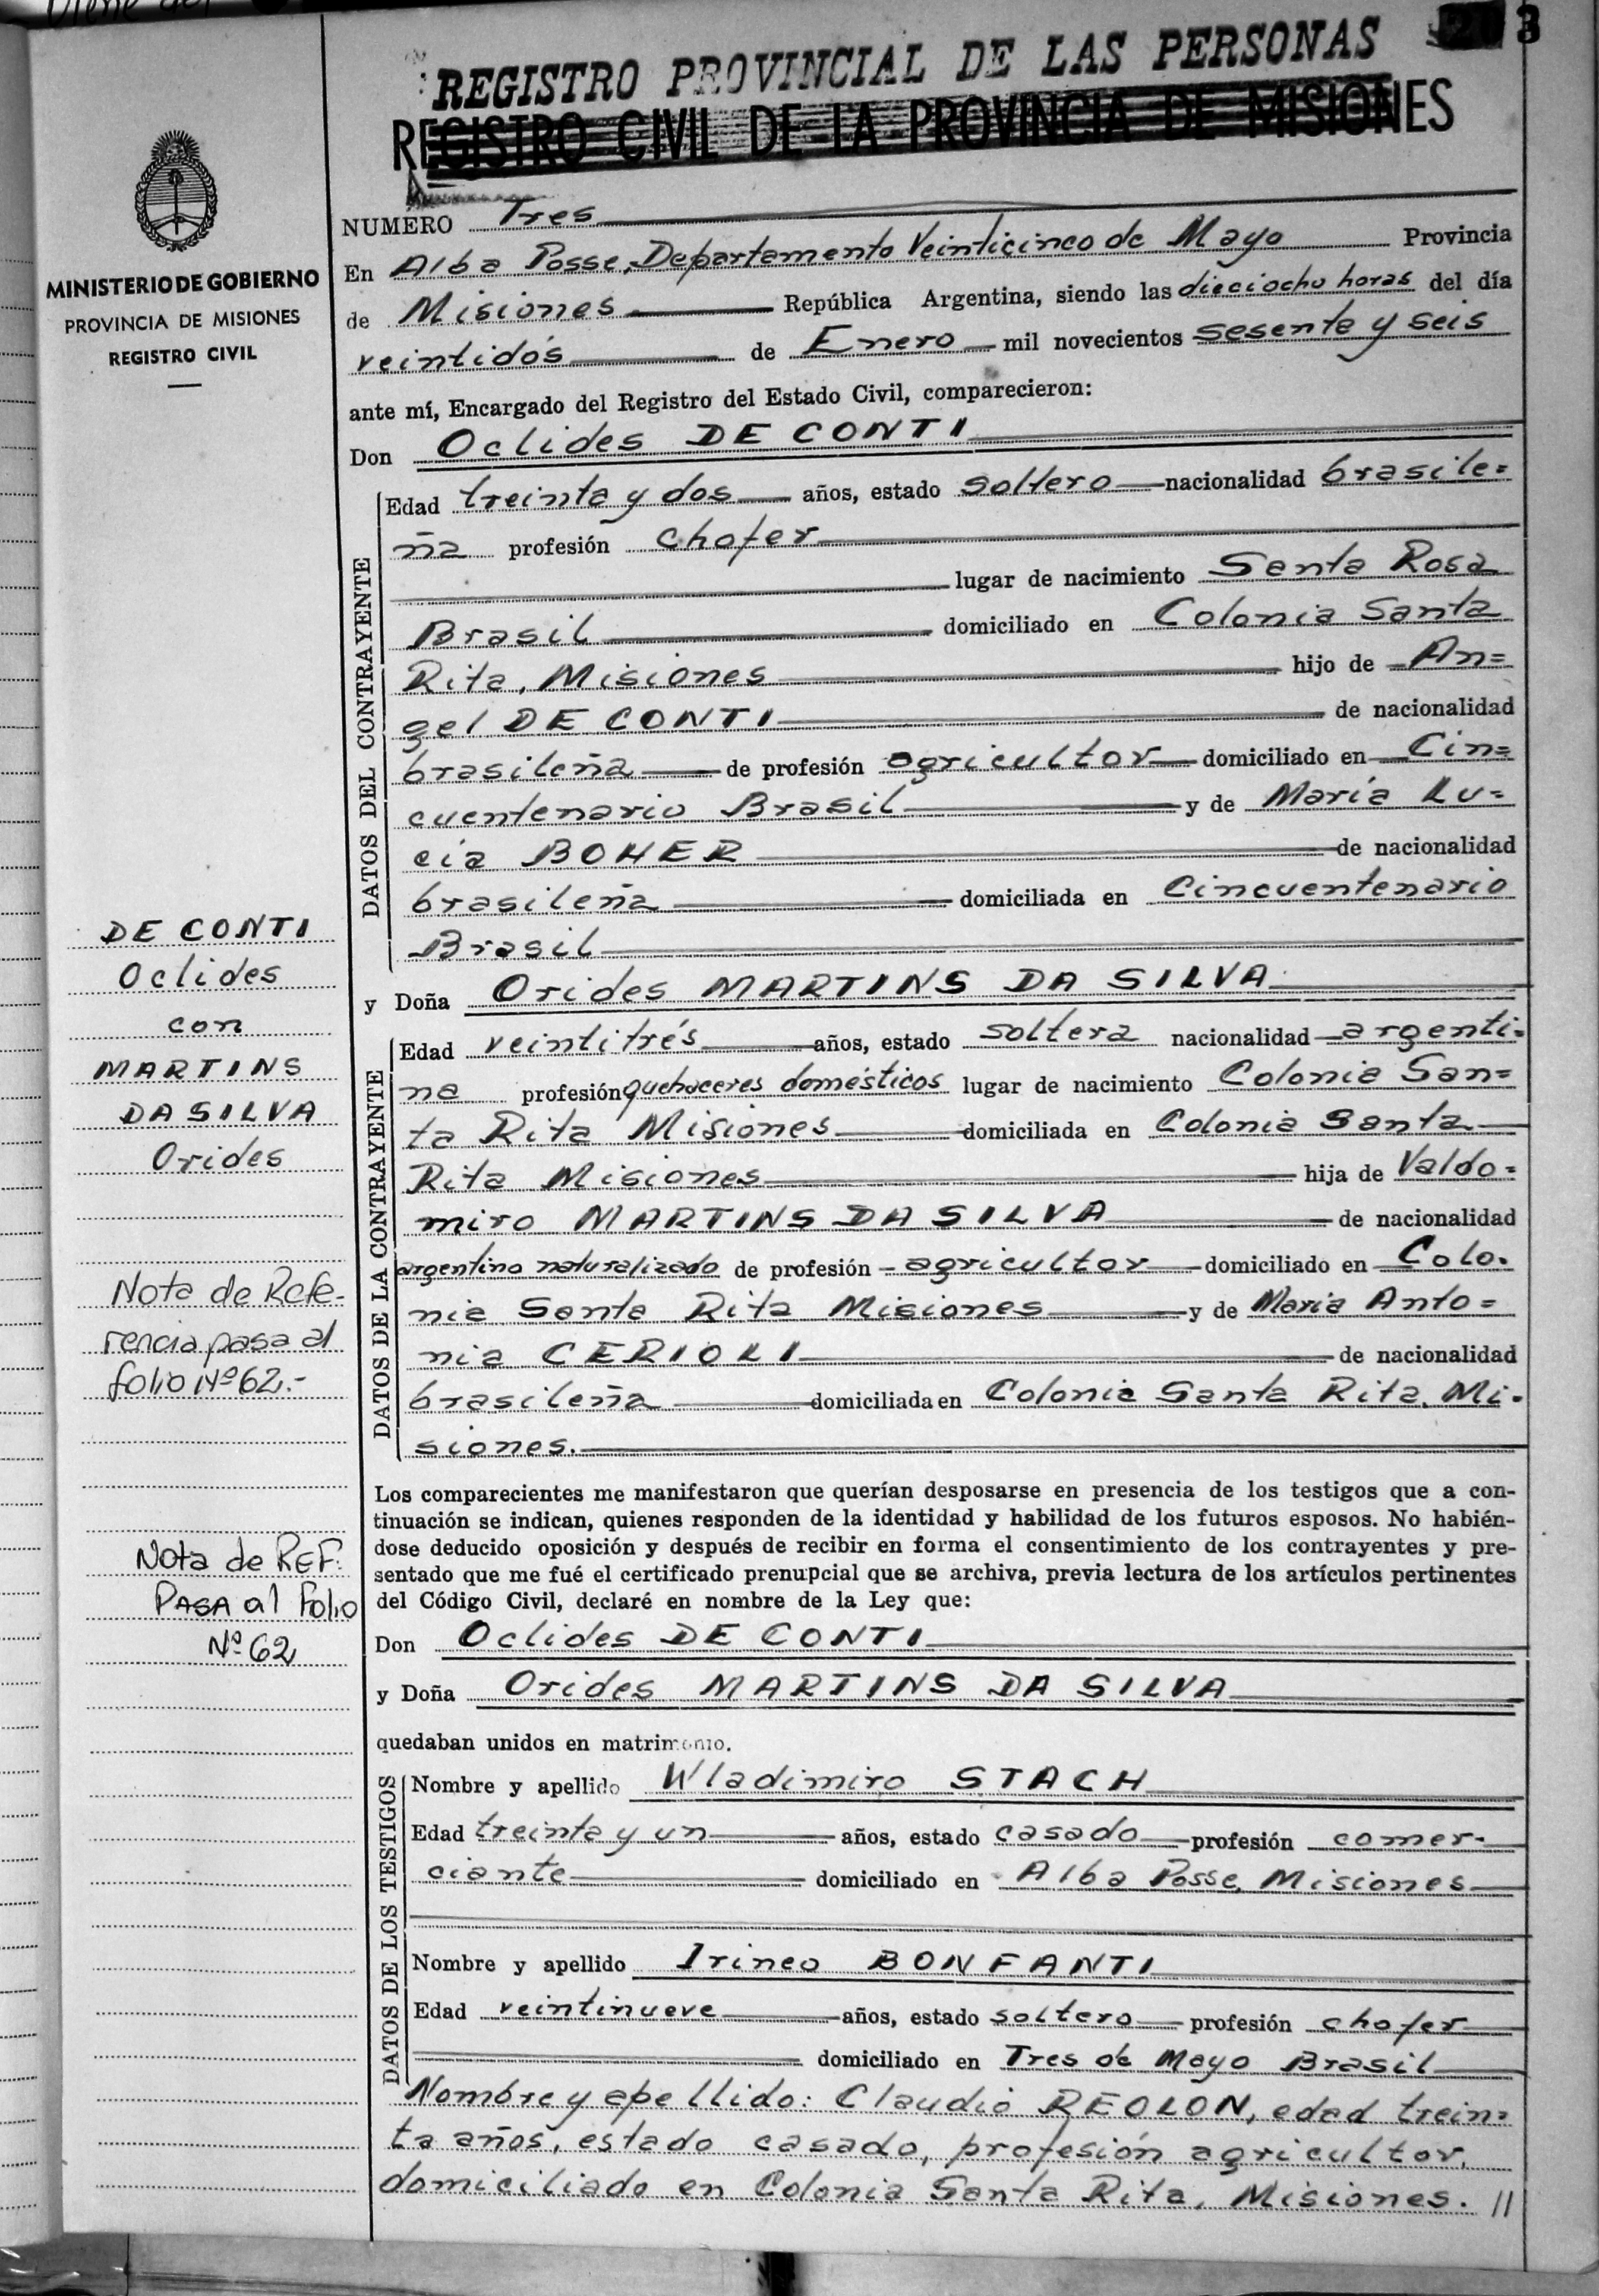 REGISTRO PROVINCIAL DE LAS PERSONAS
3
REGISTRO CIVIL DE LA PROVINCIA DE MISIONES
MINISTERIO DE GOBIERNO
PROVINCIA DE MISIONES
REGISTRO CIVIL
NUMERO Tres
En Alba Posse, Departamento Veinticinco de Mayo Provincia
de Misiones República Argentina, siendo las dieciocho horas del día
veintidós de Enero mil novecientos sesenta y seis
ante mí, Encargado del Registro del Estado Civil, comparecieron:
Don Oclides DE CONTI
DATOS DEL CONTRAYENTE
Edad treinta y dos años, estado soltero nacionalidad brasile=
ña profesión chofer
lugar de nacimiento Santa Rosa
Brasil domiciliado en Colonia Santa
Rita, Misiones hijo de An=
gel DE CONTI de nacionalidad
brasileña de profesión agricultor domiciliado en Cin=
cuentenario Brasil y de María Lu=
cía BOHER de nacionalidad
brasileña domiciliada en Cincuentenario
Brasil
y Doña Orides MARTINS DA SILVA
DATOS DE LA CONTRAYENTE
Edad veintitrés años, estado soltera nacionalidad argenti=
na profesión quehaceres domésticos lugar de nacimiento Colonia San=
ta Rita Misiones domiciliada en Colonia Santa
Rita Misiones hija de Valdo=
miro MARTINS DA SILVA de nacionalidad
argentino naturalizado de profesión agricultor domiciliado en Colo=
nia Santa Rita Misiones y de María Anto=
nia CERIOLI de nacionalidad
brasileña domiciliada en Colonia Santa Rita, Mi=
siones.
DE CONTI
Oclides
con
MARTINS
DA SILVA
Orides
Nota de Refe-
rencia pasa al
folio Nº 62.-
Nota de REF:
PASA al Folio
Nº 62
Los comparecientes me manifestaron que querían desposarse en presencia de los testigos que a con-
tinuación se indican, quienes responden de la identidad y habilidad de los futuros esposos. No habién-
dose deducido oposición y después de recibir en forma el consentimiento de los contrayentes y pre-
sentado que me fué el certificado prenupcial que se archiva, previa lectura de los artículos pertinentes
del Código Civil, declaré en nombre de la Ley que:
Don Oclides DE CONTI
y Doña Orides MARTINS DA SILVA
quedaban unidos en matrimonio.
DATOS DE LOS TESTIGOS
Nombre y apellido Wladimiro STACH
Edad treinta y un años, estado casado profesión comer-
ciante domiciliado en Alba Posse, Misiones
Nombre y apellido Irineo BONFANTI
Edad veintinueve años, estado soltero profesión chofer
domiciliado en Tres de Mayo Brasil
Nombre y apellido: Claudio REOLON, edad trein=
ta años, estado casado, profesión agricultor,
domiciliado en Colonia Santa Rita, Misiones. //